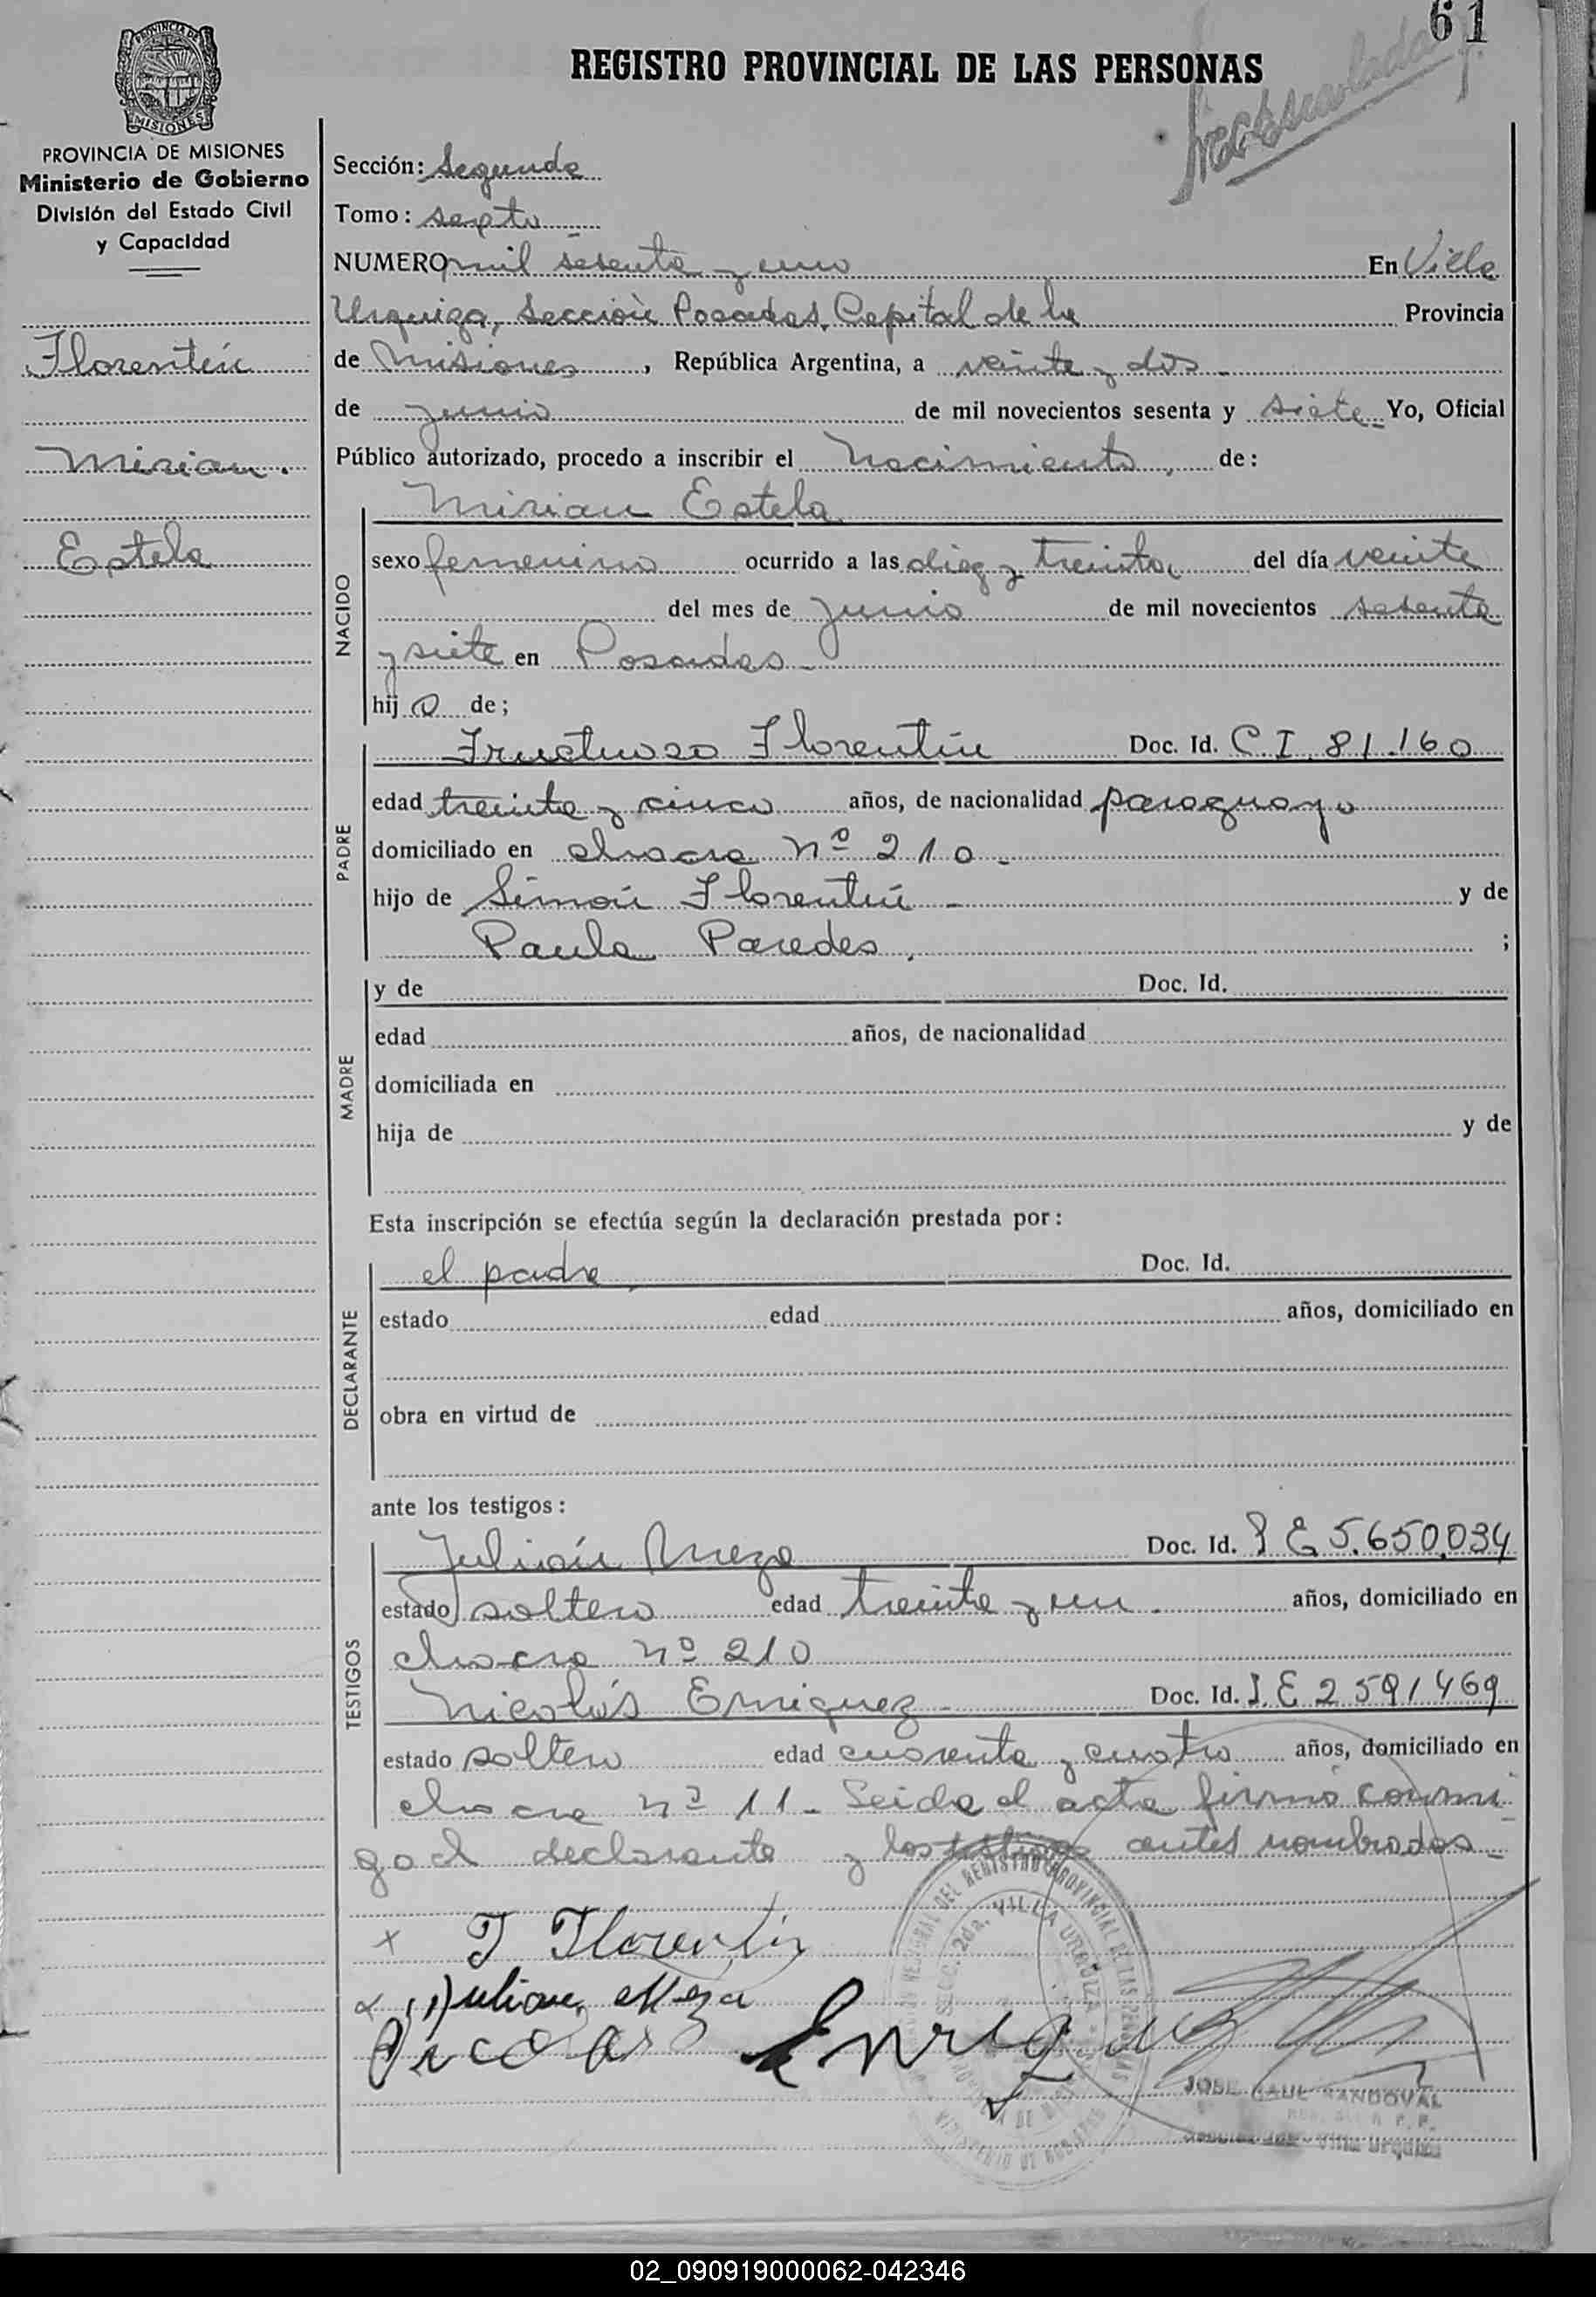 61
REGISTRO PROVINCIAL DE LAS PERSONAS
MISIONES
PROVINCIA DE MISIONES
Ministerio de Gobierno
División del Estado Civil
y Capacidad
Florentín
Mirian.
Estela
Sección: Segunda
Tomo: sexto
NUMERO mil sesenta y uno En Villa
Urquiza, Sección Posadas, Capital de la Provincia
de Misiones, República Argentina, a veinte y dos
de junio de mil novecientos sesenta y siete Yo, Oficial
Público autorizado, procedo a inscribir el Nacimiento, de:
Mirian Estela
NACIDO
sexo femenino ocurrido a las diez y treinta del día veinte
del mes de Junio de mil novecientos sesenta
y siete en Posadas-
hija de;
PADRE
Fructuoso Florentín Doc. Id. C I 81.160
edad treinta y cinco años, de nacionalidad paraguayo
domiciliado en chacra nº 210-
hijo de Simón Florentín - y de
Paula Paredes, ;
MADRE
y de Doc. Id.
edad años, de nacionalidad
domiciliada en
hija de y de
Esta inscripción se efectúa según la declaración prestada por:
DECLARANTE
el padre Doc. Id.
estado edad años, domiciliado en
obra en virtud de
ante los testigos:
TESTIGOS
Julián Meza Doc. Id. I E 5.650.034
estado soltero edad treinta y un años, domiciliado en
chacra nº 210
Nicolás Enriquez Doc. Id. I. E 2591469
estado soltero edad cuarenta y cuatro años, domiciliado en
chacra nº 11- Leida el acta firmó conmi
go el declarante y los testigos antes nombrados-
x F Florentin
Julian Meza
Nicolas Enriquez
2da. VILLA URQUIZA
JOSE RAUL SANDOVAL
Villa Urquiza
02_090919000062-042346